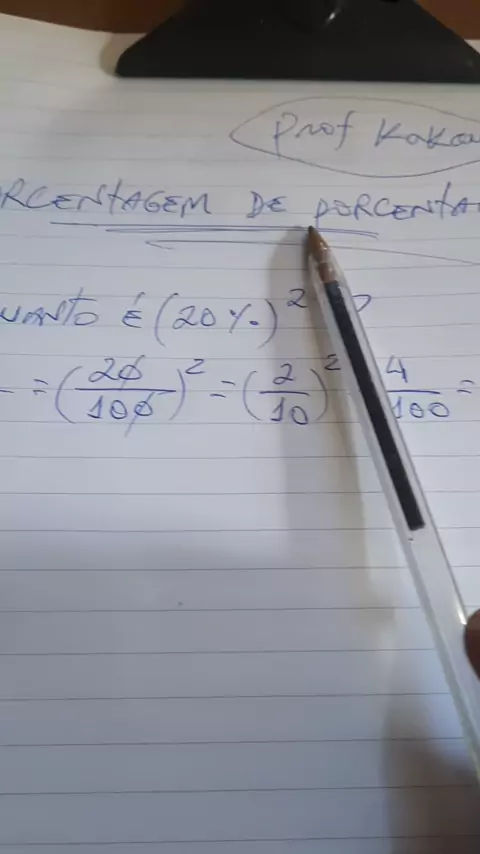 Prof Kaka
RCENTAGEM DE PORCENTA
UANTO É (20%)² ?
= (20/100)² = (2/10)² 4/100 =